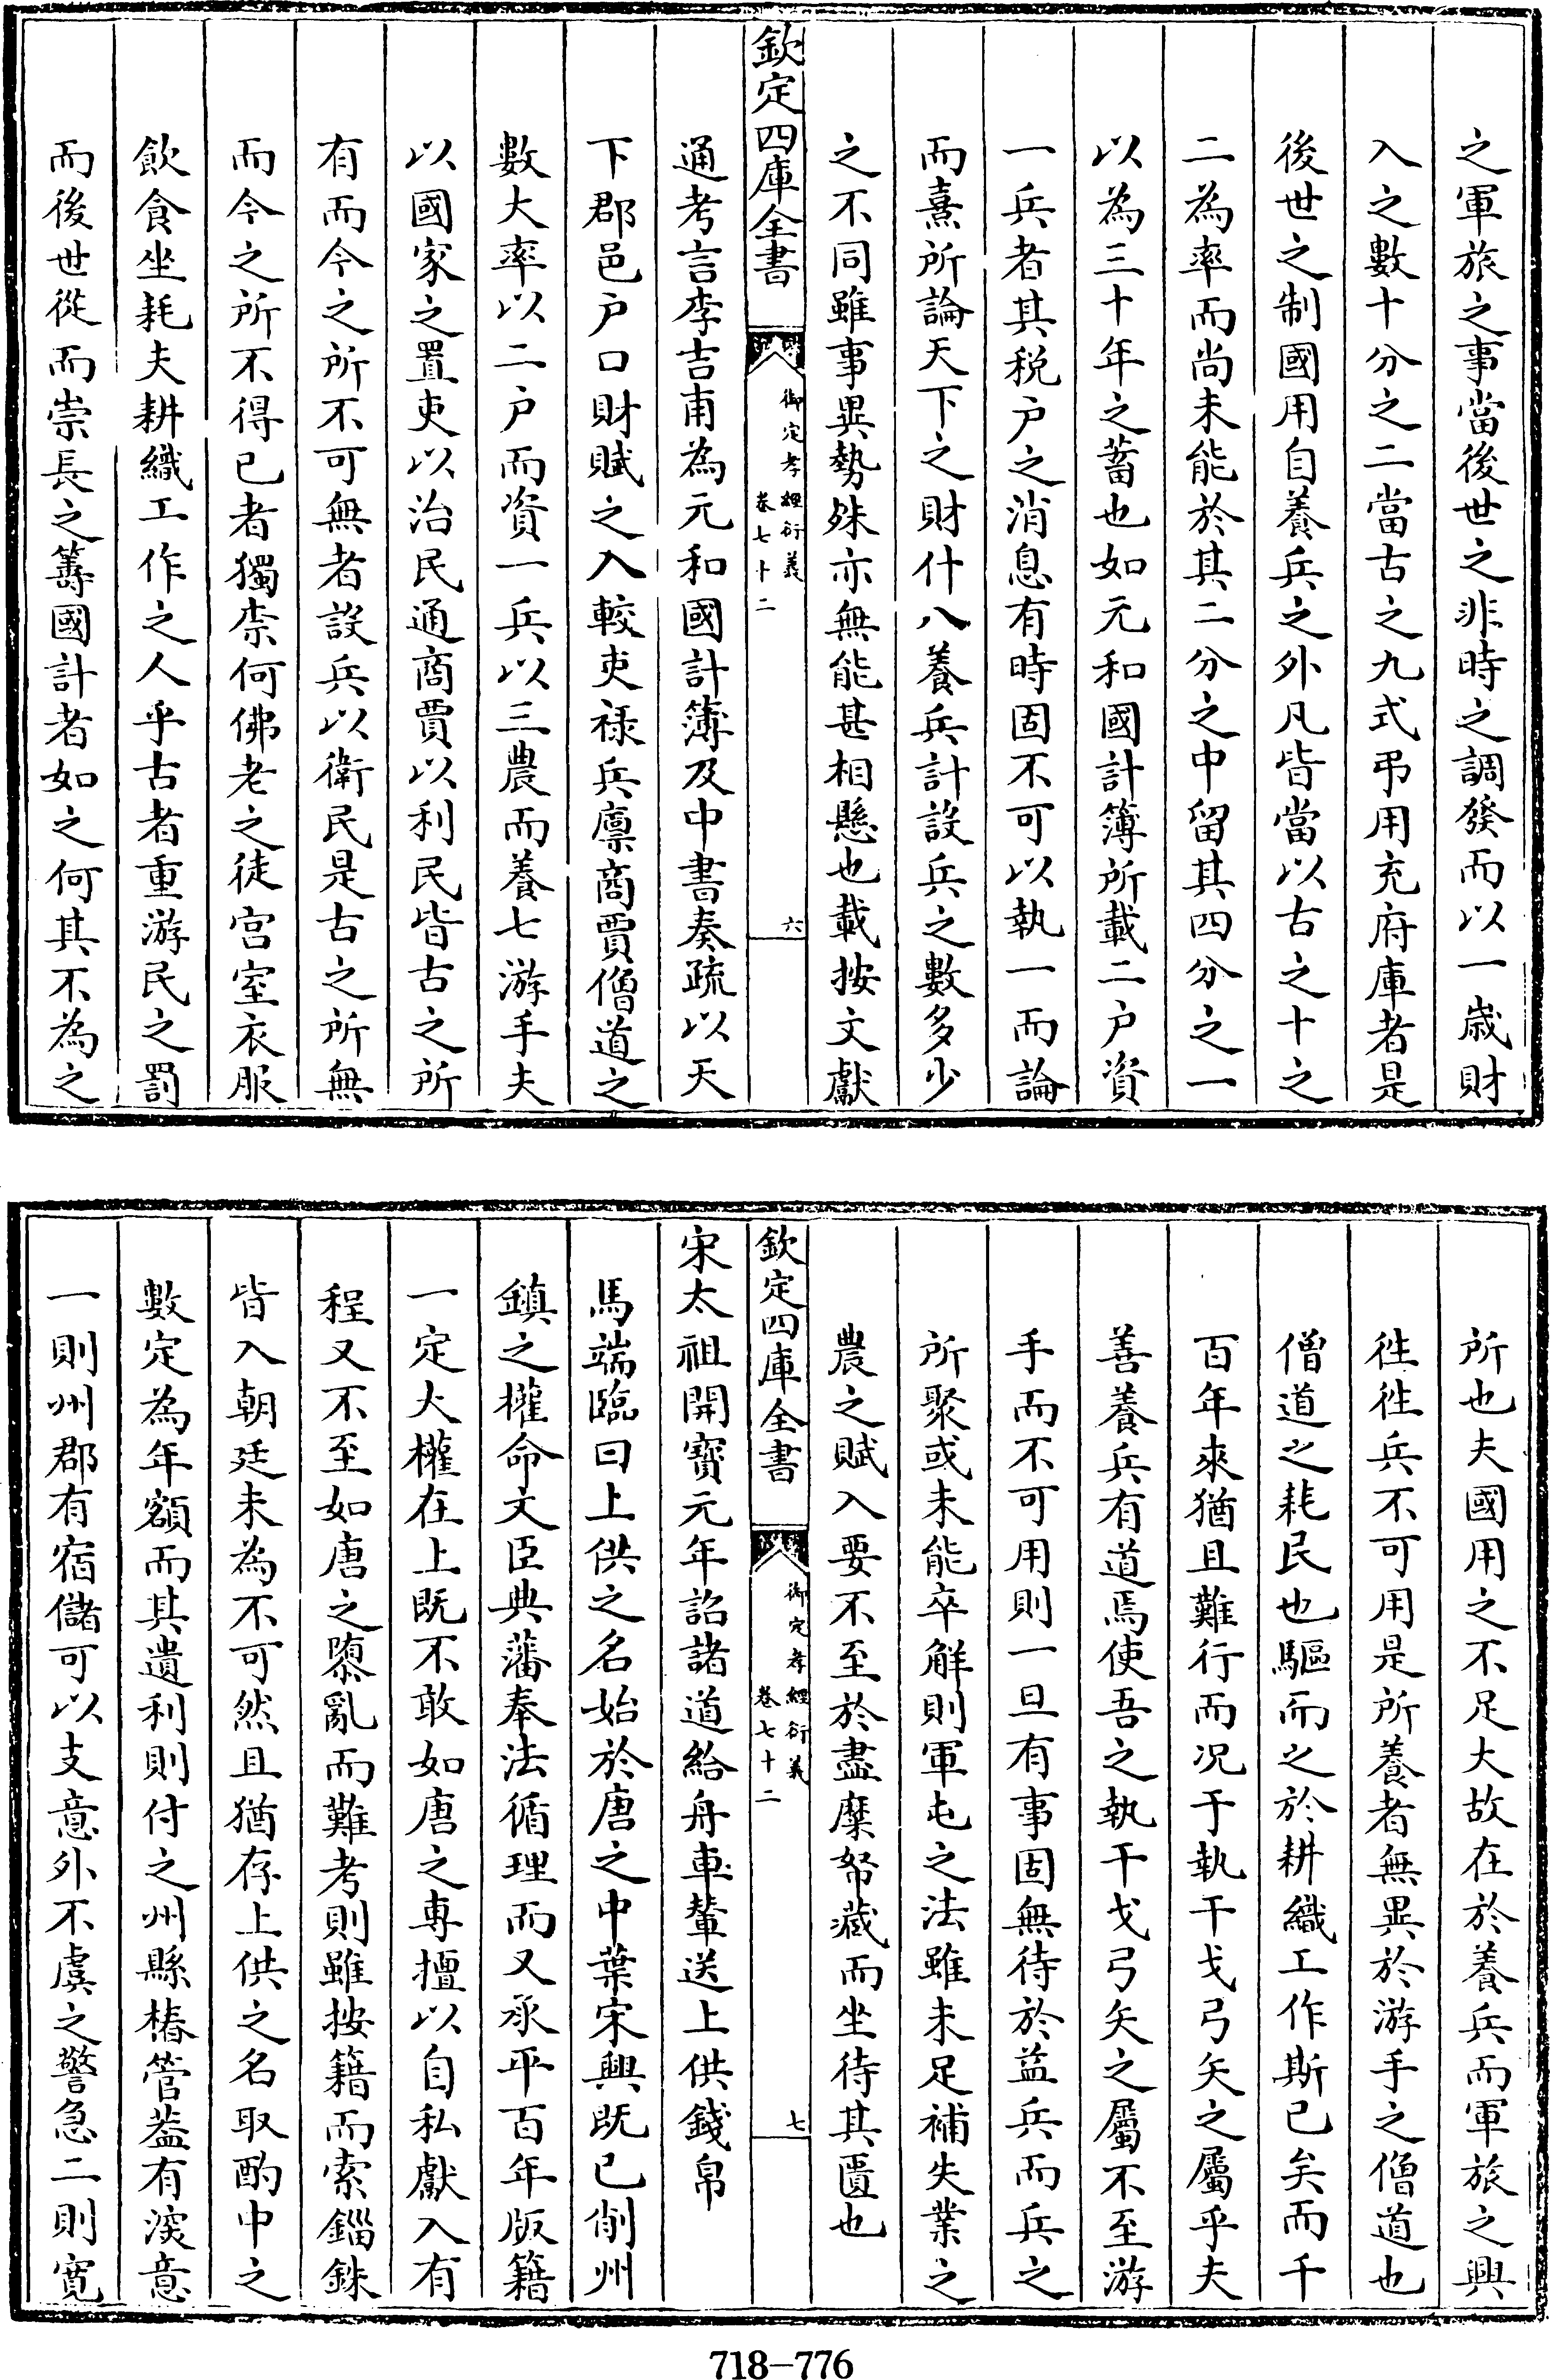 之軍旅之事當後世之非時之調發而以一歲財
入之數十分之二當古之九式弔用充府庫者是
後世之制國用自養兵之外凡皆當以古之十之
二為率而尚未能於其二分之中留其四分之一
以為三十年之蓄也如元和國計簿所載二户資
一兵者其税户之消息有時固不可以執一而論
而熹所論天下之財什八養兵計設兵之數多少
之不同雖事異勢殊亦無能甚相懸也載按文獻
欽定四庫全書
御定孝經衍義
卷七十二
六
通考言李吉甫為元和國計簿及中書奏疏以天
下郡邑户口財賦之入較吏禄兵廪商賈僧道之
數大率以二户而資一兵以三農而養七游手夫
以國家之置吏以治民通商賈以利民皆古之所
有而今之所不可無者設兵以衛民是古之所無
而今之所不得已者獨柰何佛老之徒宫室衣服
飲食坐耗夫耕織工作之人乎古者重游民之罰
而後世從而崇長之籌國計者如之何其不為之
所也夫國用之不足大故在於養兵而軍旅之興
徃徃兵不可用是所養者無異於游手之僧道也
僧道之耗民也驅而之於耕織工作斯已矣而千
百年來猶且難行而况于執干戈弓矢之屬乎夫
善養兵有道焉使吾之執干戈弓矢之屬不至游
手而不可用則一旦有事固無待於益兵而兵之
所聚或未能卒解則軍屯之法雖未足補失業之
農之賦入要不至於盡糜帑藏而坐待其匱也
欽定四庫全書
御定孝經衍義
卷七十二
七
宋太祖開寳元年詔諸道給舟車輦送上供錢帛
馬端臨曰上供之名始於唐之中葉宋興既已削州
鎮之權命文臣典藩奉法循理而又承平百年版籍
一定大權在上既不敢如唐之專擅以自私獻入有
程又不至如唐之隳亂而難考則雖按籍而索錙銖
皆入朝廷未為不可然且猶存上供之名取酌中之
數定為年額而其遺利則付之州縣椿管葢有深意
一則州郡有宿儲可以支意外不虞之警急二則寛
718-776